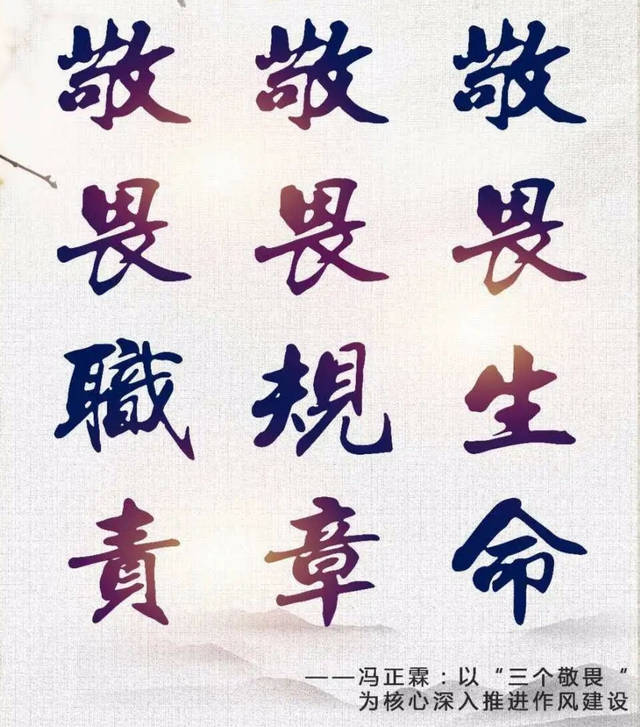 敬畏生命
敬畏規章
敬畏職責
——冯正霖：以“三个敬畏“
为核心深入推进作风建设